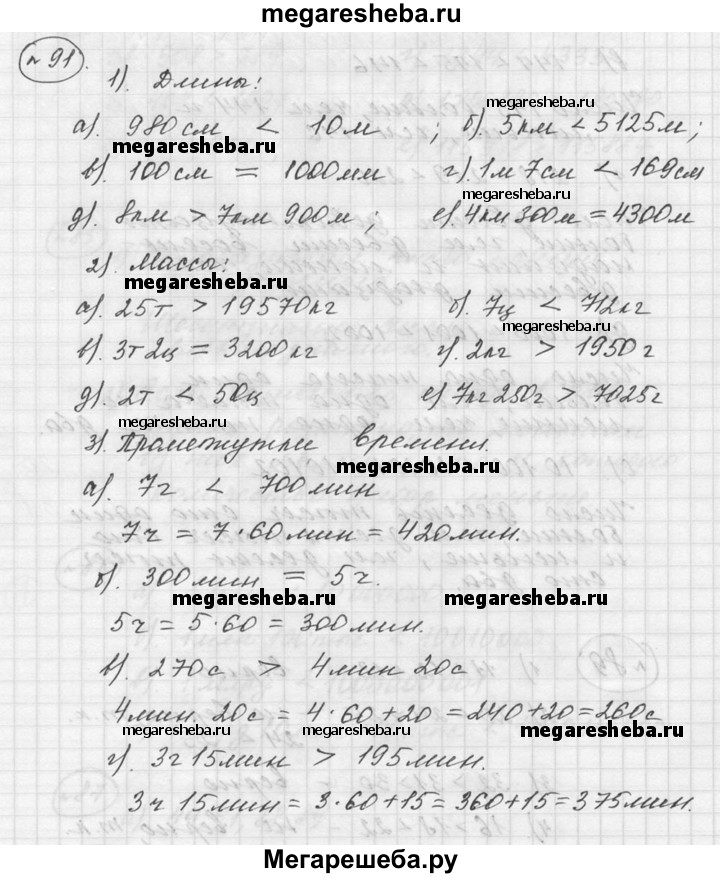 megaresheba.ru
№ 91.
1). Длины:
megaresheba.ru
а). 980 см < 10 м ; б). 5 км < 5125 м;
megaresheba.ru
в). 100 см = 1000 мм г). 1 м 7 см < 169 см
megaresheba.ru
д). 8 км > 7 км 900 м; е). 4 км 300 м = 4300 м
2). Массы:
megaresheba.ru
а). 25 т > 19570 кг б). 7 ц < 712 кг
megaresheba.ru
в). 3 т 2 ц = 3200 кг г). 2 кг > 1950 г
д). 2 т < 50 ц е) 7 кг 250 г > 7025 г
megaresheba.ru
3) Промежутки времени.
megaresheba.ru
а). 7 ч < 700 мин
7 ч = 7 · 60 мин = 420 мин.
б). 300 мин = 5 ч.
megaresheba.ru megaresheba.ru
5 ч = 5 · 60 = 300 мин.
в). 270 с > 4 мин 20 с
4 мин. 20 с = 4 · 60 + 20 = 240 + 20 = 260 с
megaresheba.ru megaresheba.ru
г). 3 ч 15 мин > 195 мин.
3 ч 15 мин = 3 · 60 + 15 = 360 + 15 = 375 мин.
megaresheba.ru
Мегарешеба.ру